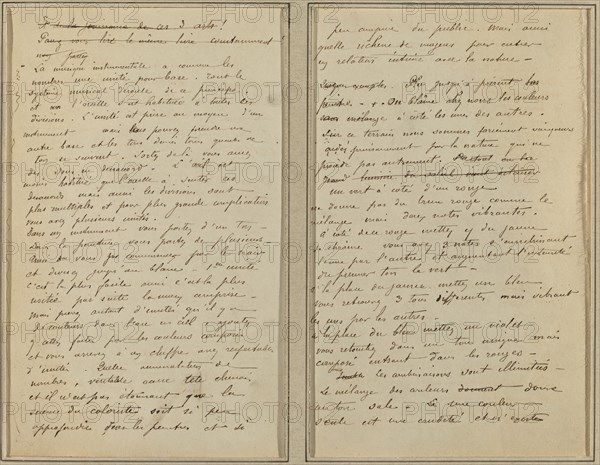 et de la jouissance de ces 3 arts!
lire le même livre constamment
La musique instrumentale a comme les
nombres une unité pour base. Tout le
système musical découle de ce principe,
et l'oreille s'est habituée à toutes ces
divisions. L'unité est prise au moyen d'un
instrument mais vous pouvez prendre une
autre base et les tons demi tons quarts de
ton se suivront. Sortez de là vous avez
des sons en désaccord. L'œil est
moins habitué que l'oreille à sentir ces
désaccords mais aussi les divisions sont
plus multiples et pour plus grande complication
vous avez plusieurs unités.
Dans un instrument vous partez d'un ton
Dans la peinture vous partez de plusieurs
Ainsi vous commencez par le noir
et divisez jusqu'au blanc - 1ère unité
c'est la plus facile aussi c'est la plus
usitée par suite la mieux comprise -
Mais prenez autant d'unités qu'il y a
de couleurs dans l'arc en ciel ajoutez
y celles faites par les couleurs composées
et vous arrivez à un chiffre assez respectable
d'unités. Quelle accumulation de
nombres, véritable casse tête chinois,
et il n'est pas étonnant que la
science du coloriste soit si peu
approfondie par les peintres et si
peu comprise du public. Mais aussi
quelle richesse de moyens pour entrer
en relation intime avec la nature -
On blâme chez nous les couleurs
mélange à côté les unes des autres.
Sur ce terrain nous sommes forcément vainqueurs
aidés puissamment par la nature qui ne
procède pas autrement.
un vert à côté d'un rouge
ne donne pas du brun rouge comme le
mélange mais deux notes vibrantes.
à côté de ce rouge mettez du jaune
de chrome vous avez 3 notes s'enrichissant
l'une par l'autre et augmentant l'intensité
du premier ton le vert -
à la place du jaune mettez un bleu
vous retrouvez 3 tons différents mais vibrant
les uns par les autres -
à la place du bleu mettez un violet
vous retombez dans un ton unique mais
composé entrant dans les rouges -
Les combinaisons sont illimitées
Le mélange des couleurs donne
un ton sale. une couleur
seule est une crudité et n'existe